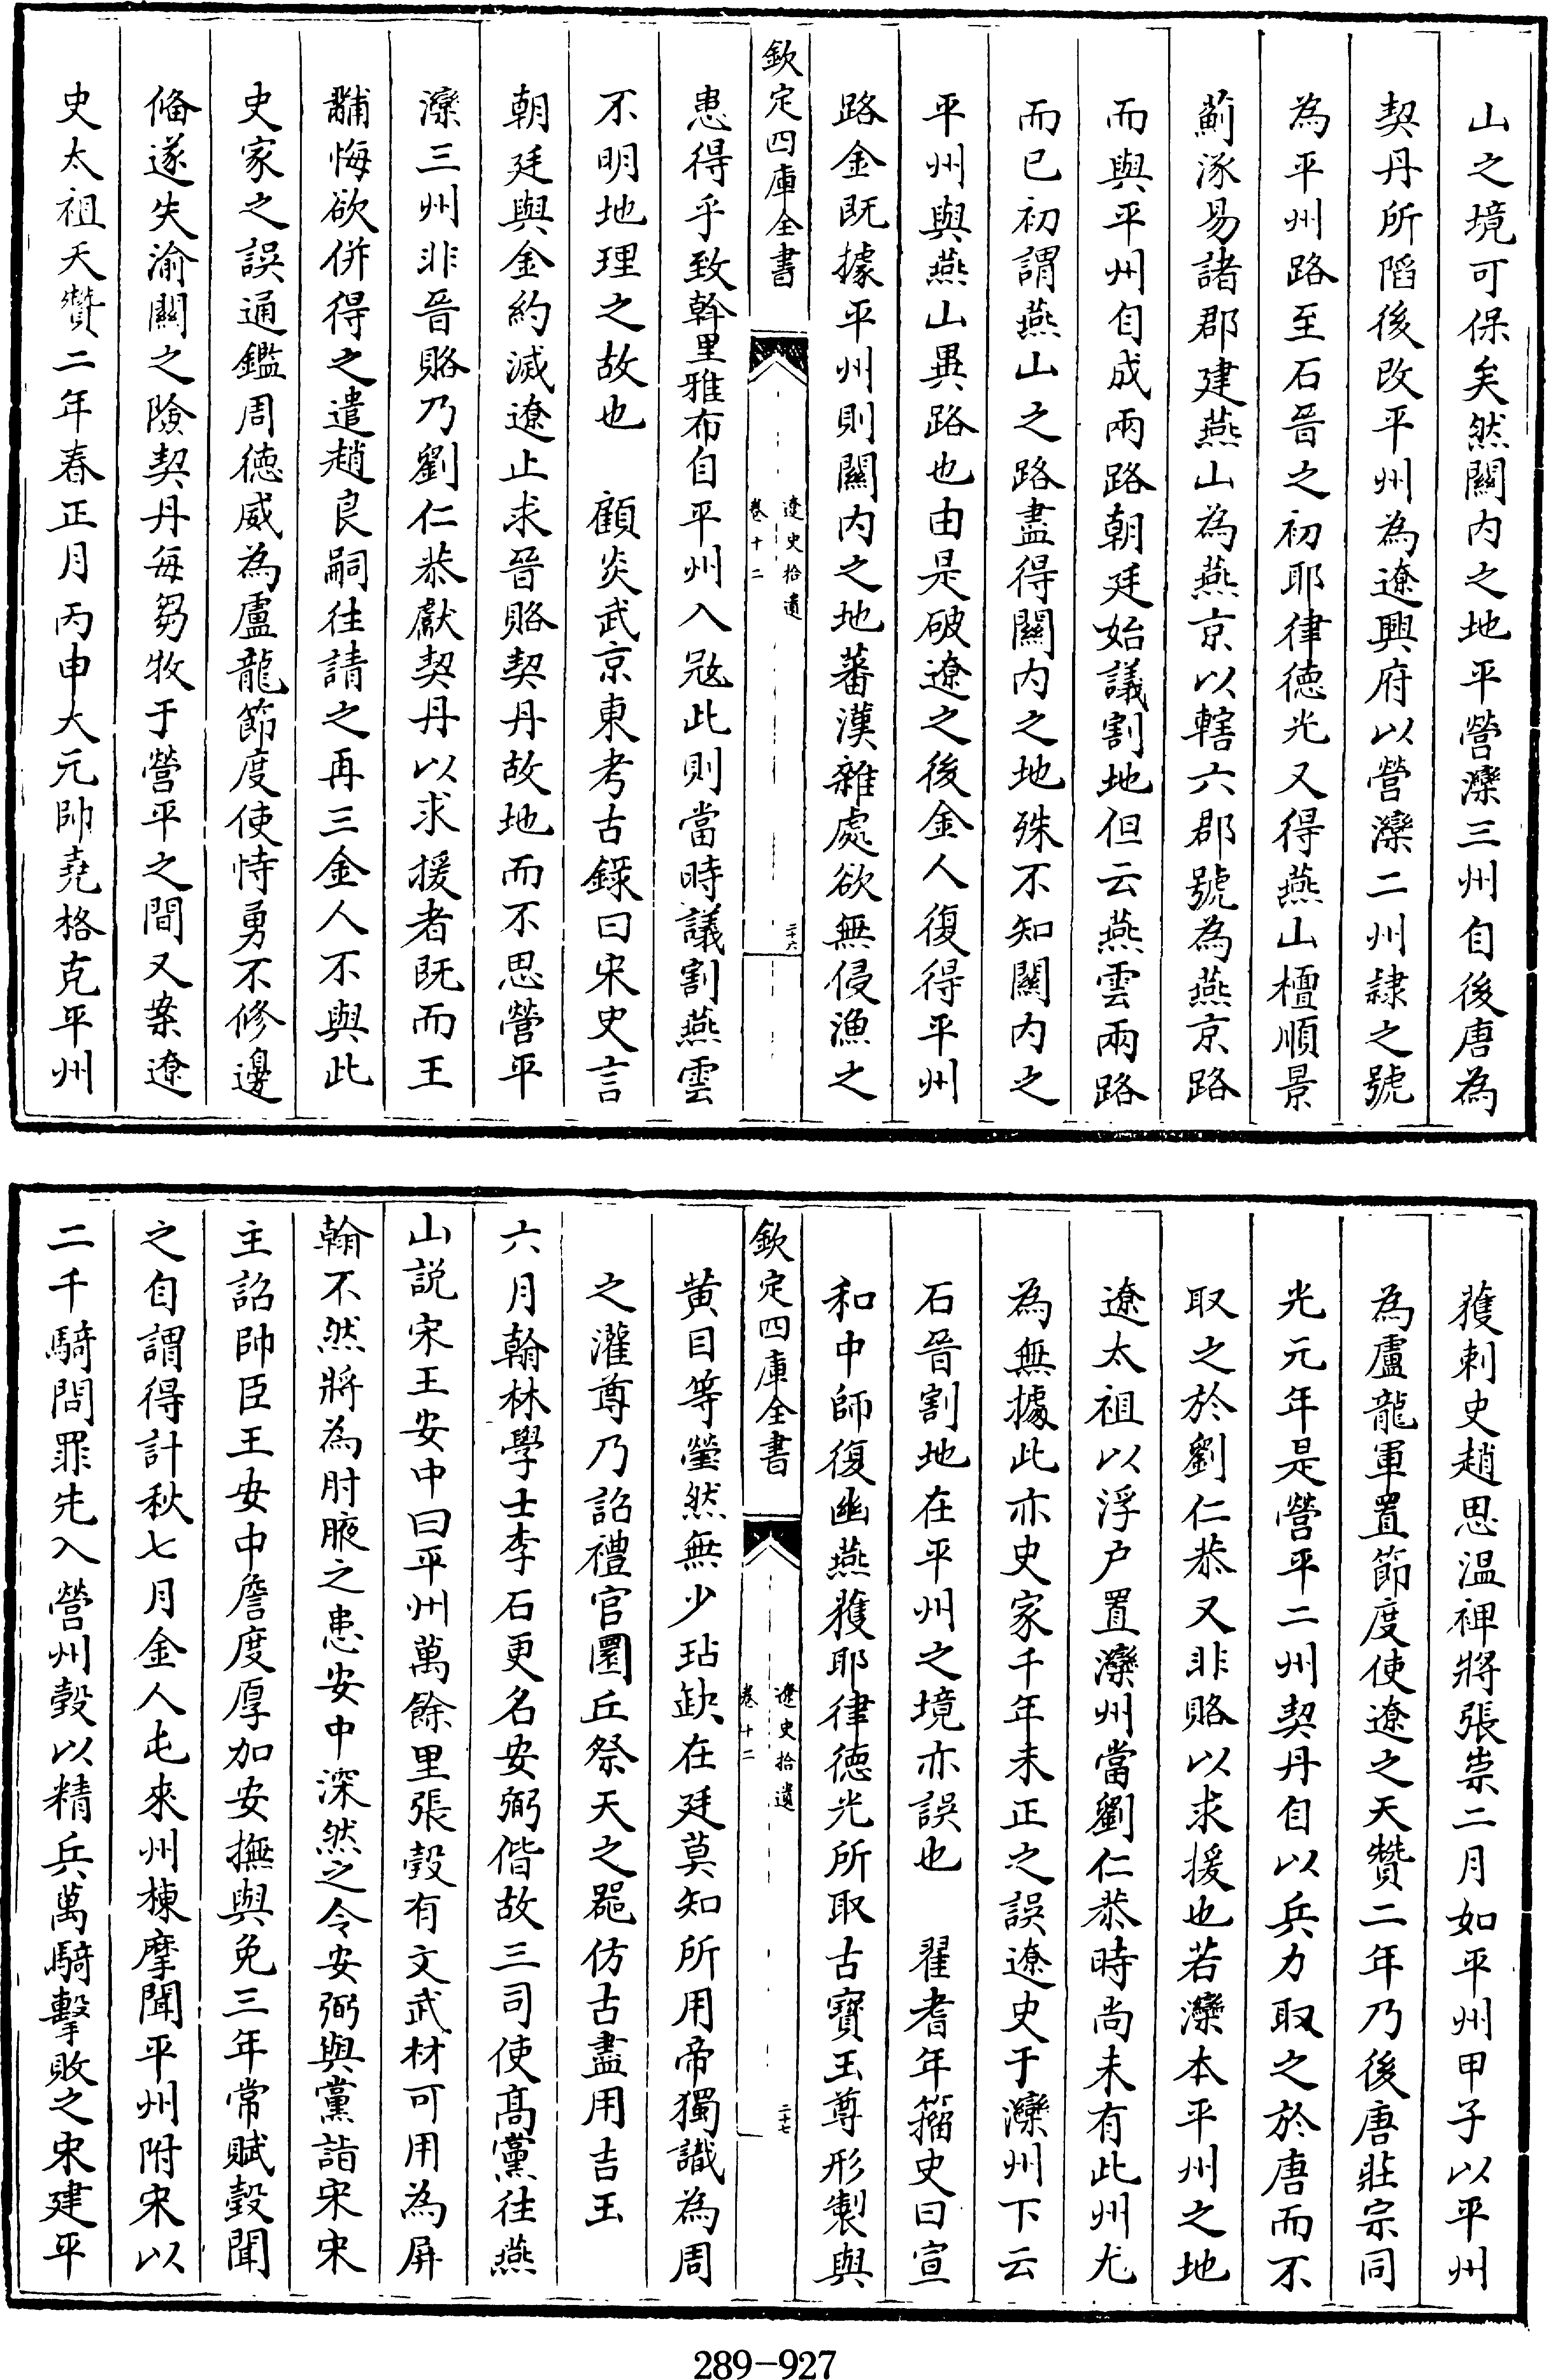 山之境可保矣然關内之地平營灤三州自後唐為
契丹所䧟後改平州為遼興府以營灤二州𨽻之號
為平州路至石晉之初耶律徳光又得燕山檀順景
薊涿易諸郡建燕山為燕京以轄六郡號為燕京路
而與平州自成兩路朝廷始議割地但云燕雲兩路
而已初謂燕山之路盡得關内之地殊不知關内之
平州與燕山異路也由是破遼之後金人復得平州
路金既據平州則關内之地蕃漢雜處欲無侵漁之
欽定四庫全書
遼史拾遺
卷十二
二十六
患得乎致斡里雅布自平州入㓂此則當時議割燕雲
不明地理之故也　顧炎武京東考古錄曰宋史言
朝廷與金約滅遼止求晉賂契丹故地而不思營平
灤三州非晉賂乃劉仁恭獻契丹以求援者既而王
黼悔欲併得之遣趙良嗣往請之再三金人不與此
史家之誤通鑑周徳威為盧龍節度使恃勇不修邊
備遂失渝關之險契丹毎芻牧于營平之間又案遼
史太祖天贊二年春正月丙申大元帥堯格克平州
獲刺史趙思溫裨將張崇二月如平州甲子以平州
為盧龍軍置節度使遼之天贊二年乃後唐莊宗同
光元年是營平二州契丹自以兵力取之於唐而不
取之於劉仁恭又非賂以求援也若灤本平州之地
遼太祖以浮户置灤州當劉仁恭時尚未有此州尤
為無據此亦史家千年未正之誤遼史于灤州下云
石晉割地在平州之境亦誤也　翟耆年籀史曰宣
和中師復幽燕獲耶律徳光所取古寶玉尊形製與
欽定四庫全書
遼史拾遺
卷十二
二十七
黄目等瑩然無少玷缺在廷莫知所用帝獨識為周
之灌尊乃詔禮官圜丘祭天之器仿古盡用吉玉
六月翰林學士李石更名安弼偕故三司使高黨往燕
山説宋王安中曰平州萬餘里張瑴有文武材可用為屏
翰不然將為肘腋之患安中深然之令安弼與黨詣宋宋
主詔帥臣王安中詹度厚加安撫與免三年常賦瑴聞
之自謂得計秋七月金人屯來州棟摩聞平州附宋以
二千騎問罪先入營州瑴以精兵萬騎擊敗之宋建平
289-927